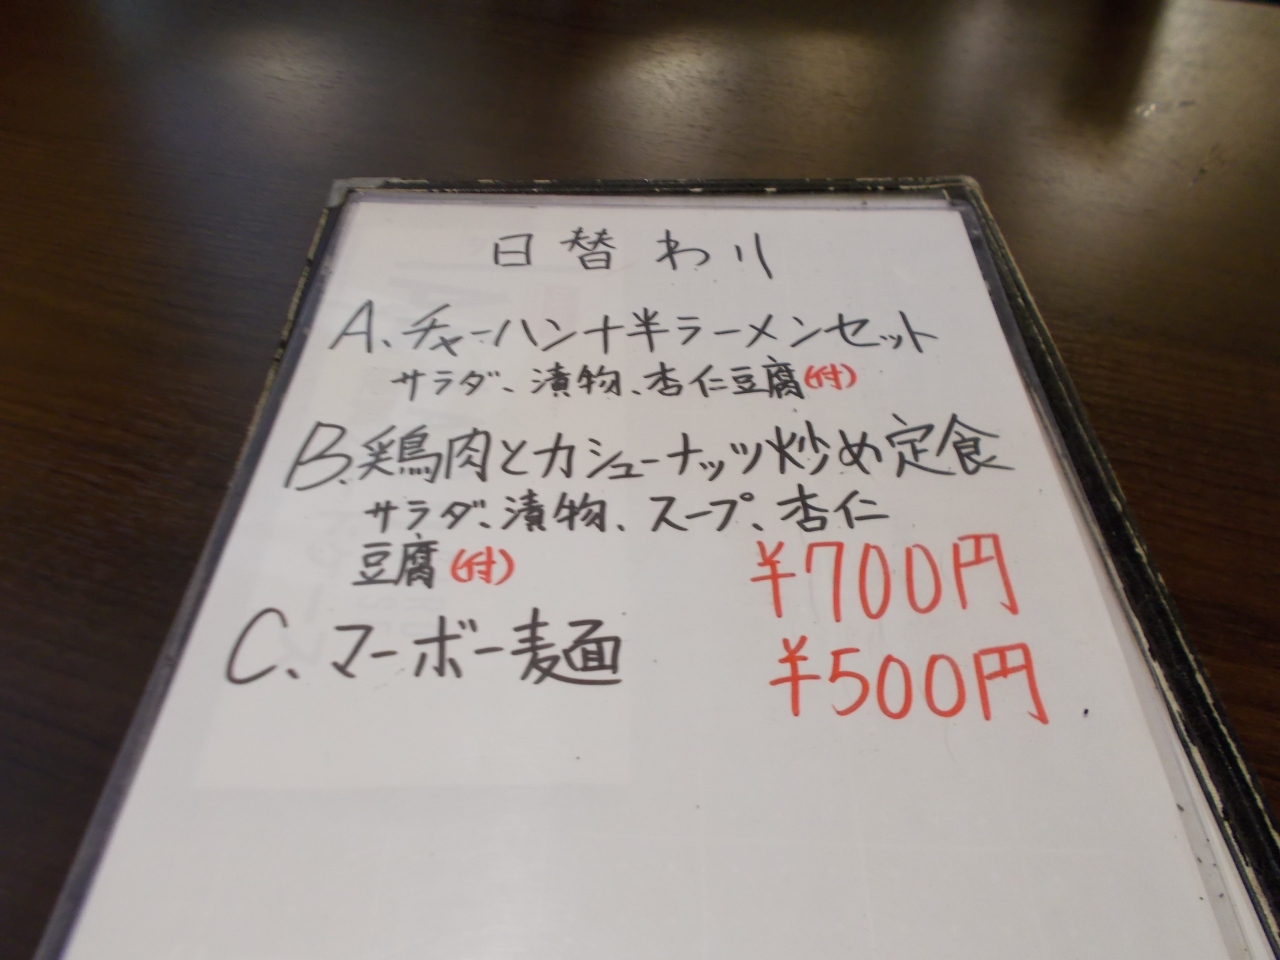 日替わり
A、チャーハン+半ラーメンセット
サラダ、漬物、杏仁豆腐(付)
B.鶏肉とカシューナッツ炒め定食
サラダ、漬物、スープ、杏仁
豆腐(付) ¥700円
C、マーボー麺 ¥500円